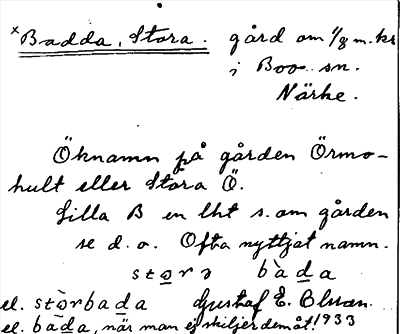 ×Badda, Stora. gård om 1/8 m. kr
i Boo sn.
Närke.
Öknamn på gården Örmo-
hult eller Stora Ö.
Lilla B en lht s. om gården
se d. o. Ofta nyttjat namn.
størə bàda
el. stø̀rbada Gustaf E. Olsson.
el. bàda, när man ej skiljer dem åt. 1933